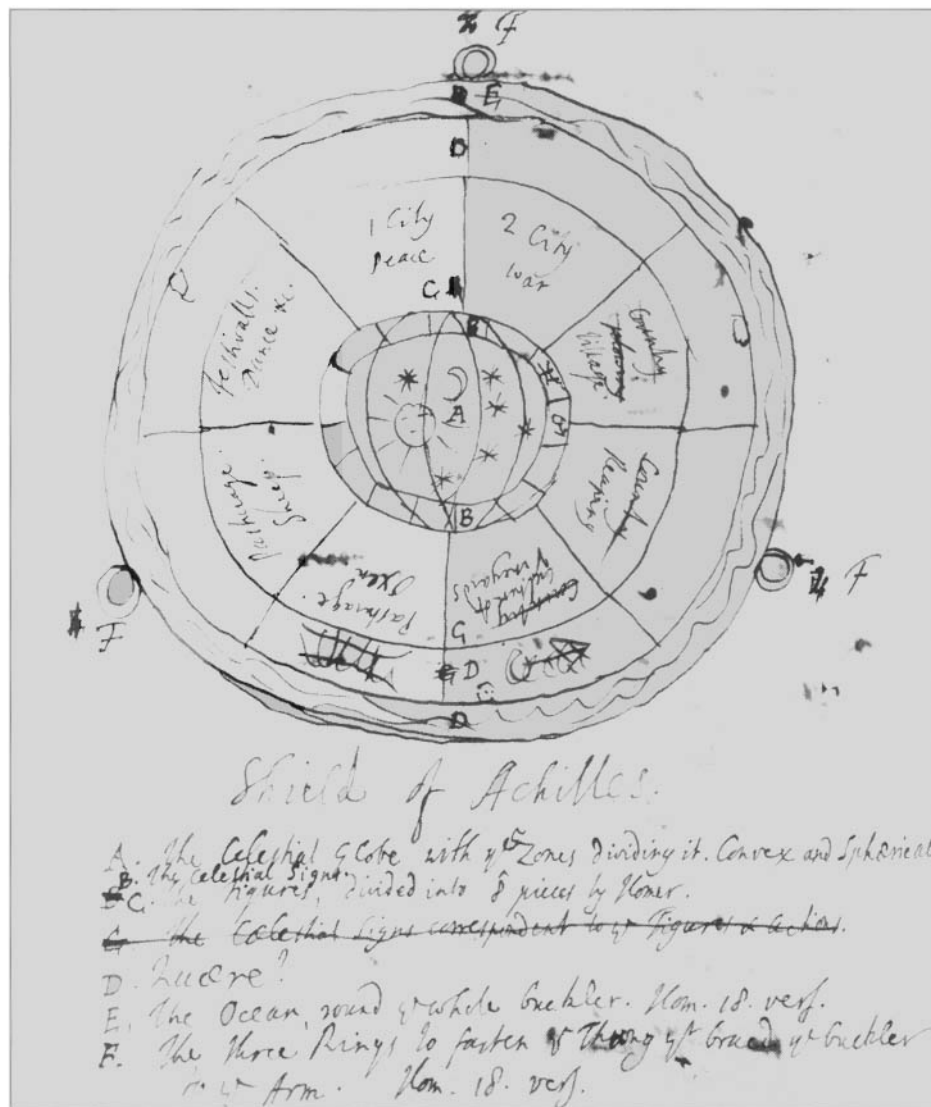 F
E
D
1 City
peace
2 City
war
C
B
Festivalls.
Dance &c.
Country
Village
A
Pasturage.
Sheep.
Country
Reaping
B
Pasturage.
Oxen
Country
vineyards
D
D
F
F
Shield of Achilles.
A. The Celestial Globe with yᵉ 5 Zones dividing it. Convex and Sphærical
B. The Celestial Signs.
C. The figures, divided into 8 pieces by Homer.
The Cœlestial Signs correspondent to yᵉ Figures & actions.
D. Quære?
E. The Ocean, round yᵉ whole buckler. Hom. 18. vers.
F. The three Rings to fasten yᵉ Thong yᵗ braced yᵉ buckler
yᵉ Arm. Hom. 18. vers.